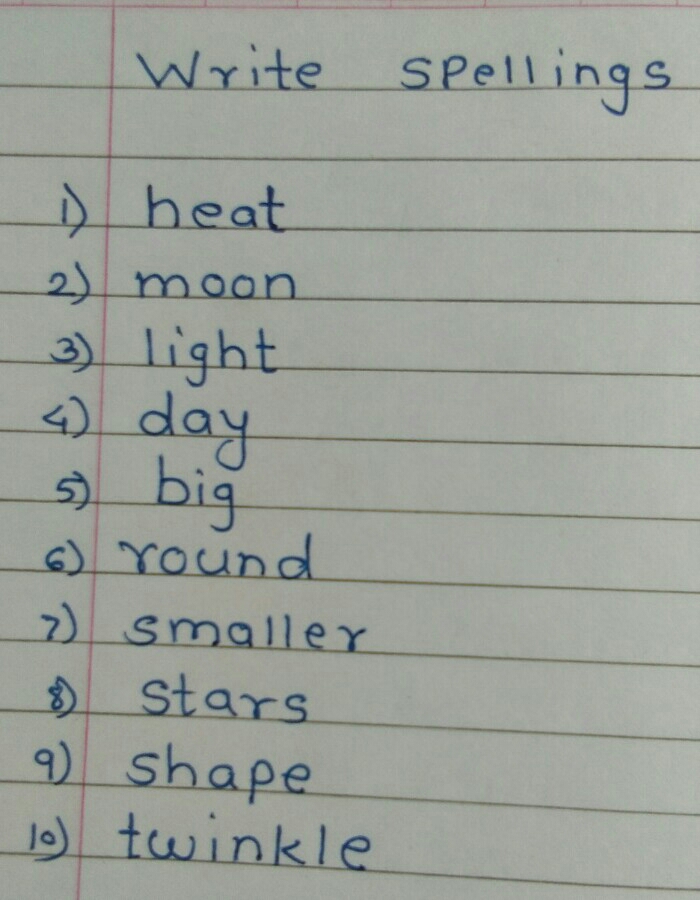 Write spellings
1) heat
2) moon
3) light
4) day
5) big
6) round
7) smaller
8) stars
9) shape
10) twinkle